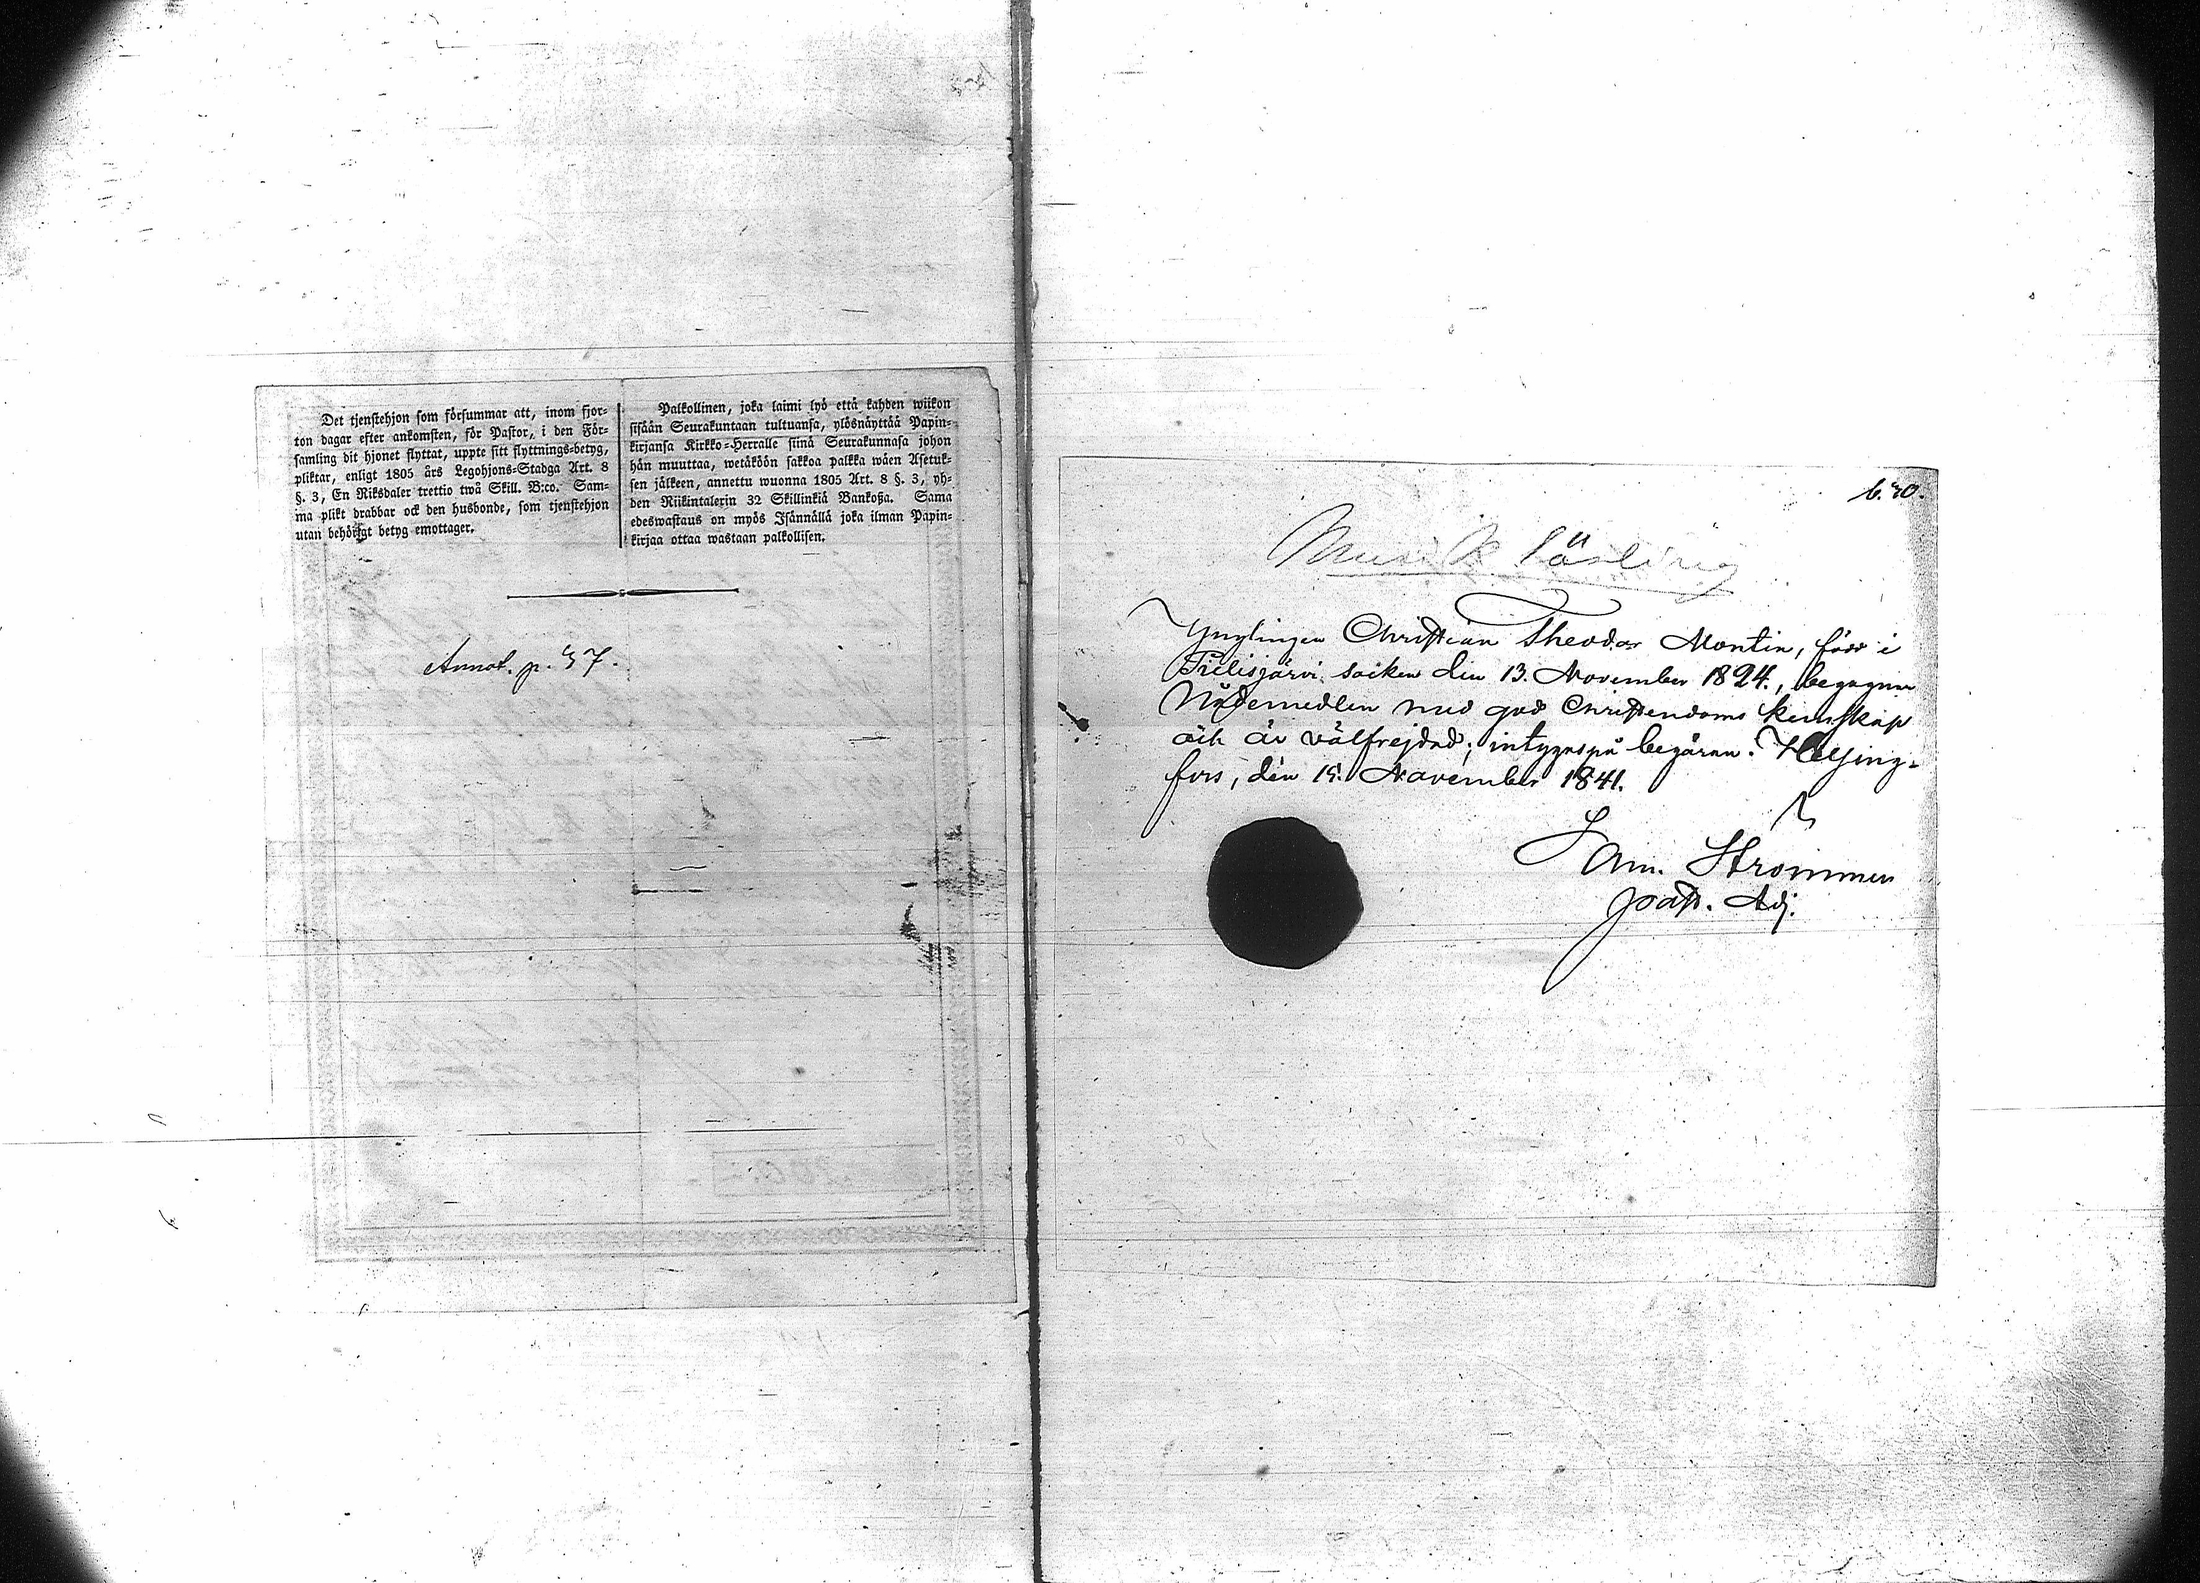 Det tjenstehjon som försummar att, inom fjor-
ton dagar efter ankomsten, för Pastor, i den För-
samling dit hjonet flyttat, uppte sitt flyttnings-betyg,
pliktar, enligt 1805 års Legohjons-Stadga Art. 8
§. 3, En Riksdaler trettio twå Skill. B:co. Sam-
ma plikt drabbar ock den husbonde, som tjenstehjon
utan behörigt betyg emottager.
Palkollinen, joka laimi lyö että kahden wiikon
sisään Seurakuntaan tultuansa, ylösnäyttää Papin-
kirjansa Kirkko-Herralle siinä Seurakunnasa johon
hän muuttaa, wetäköön sakkoa palkka wäen Asetuk-
sen jälkeen, annettu wuonna 1805 Art. 8 §. 3, yh-
den Riikintalerin 32 Skillinkiä Bankoßa. Sama
edeswastaus on myös Isännällä joka ilman Papin-
kirjaa ottaa wastaan palkollisen.
Annot. p. 37.
b. 70.
Musik lärling
Ynglingen Christian Theodor Montin, född i
Pielisjärvi socken den 13. November 1824., begagnar
Nådemedlen med god Christendoms kunskap
och är välfrejdad; intygas på begäran. Helsing-
fors, den 15. November 1841.
Sam. Strömmer
past. Adj.